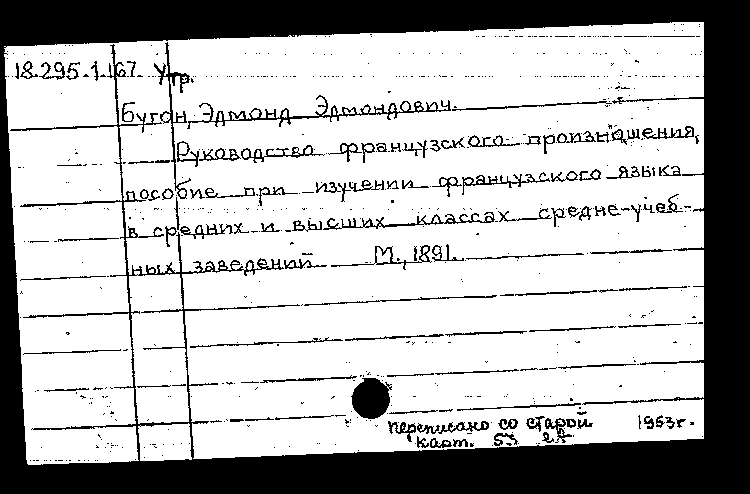 18.295.1.167. Утр.
Бугон, Эдмонд Эдмондович.
Руководство французского произношения,
пособие при изучении французского языка
в средних и высших классах средне-учеб-
ных заведений М., 1891.
переписано со старой 1953г.
карт. 53